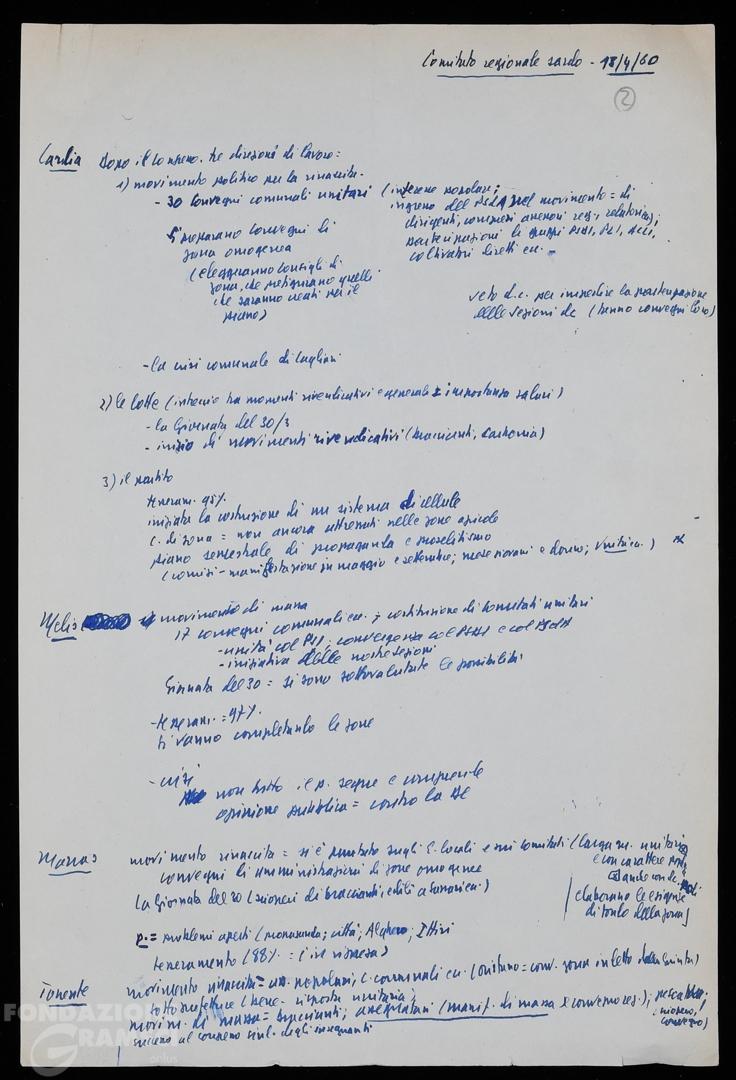 Comitato regionale sardo - 18/4/60
2
Cardia Dopo il congresso. tre direzioni di lavoro:
1) movimento politico per la rinascita.
- 30 convegni comunali unitari (interesse popolare;
ingresso del PSd'A nel movimento = di
dirigenti, consiglieri, assessori reg., relatori;
partecipazioni di gruppi PSDI, PLI, ACLI,
coltivatori diretti ecc.
si preparano convegni di
zona omogenea
(eleggeranno consigli di
zona, che prefigurano quelli
che saranno creati per il
piano)
veto d.c. per impedire la partecipazione
delle sezioni dc (fanno convegni loro)
- la crisi comunale di Cagliari
2) le lotte (intreccio tra momenti rivendicativi e generali: importanza salari)
- la giornata del 30/3
- inizio di movimenti rivendicativi (braccianti, Carbonia)
3) il partito
tesseram. 95%.
iniziata la costruzione di un sistema di cellule
C. di zona = non ancora attrezzati nelle zone agricole
piano semestrale di propaganda e proselitismo
(comizi - manifestazione in maggio e settembre; mese giovani e donne; )
Melis movimento di massa
17 convegni comunali ecc.; costituzione di comitati unitari
- unità col PSI; convergenza col PSDI e col PSd'A
- iniziativa delle nostre sezioni
Giornata del 30 = si sono sottovalutate le possibilità
- tesseram. = 97%.
si vanno completando le zone
- crisi
non tutto il p. segue e comprende
opinione pubblica = contro la DC
Marras movimento rinascita = si è puntato sugli E. locali e sui comitati (largam. unitari
e con carattere
anche con dc.
convegni di amministrazioni di zone omogenee
elaborano le esigenze
di fondo della zona)
La giornata del 30 (scioperi di braccianti, edili a )
p. = problemi aperti (propaganda; città; Alghero; Ittiri
tesseramento (88% = )
Tonente movimento rinascita = ass. popolari, c. comunali ecc. (Oristano = conv. zona indetto dalla Giunta)
sottoprefettura (bene - risposta unitaria);
movim. di massa = braccianti; assegnatari (manif. di massa e convegno reg.); pescatori
(sciopero,
convegno)
successo al congresso sind. degli insegnanti
FONDAZIONE
GRAMSCI
onlus